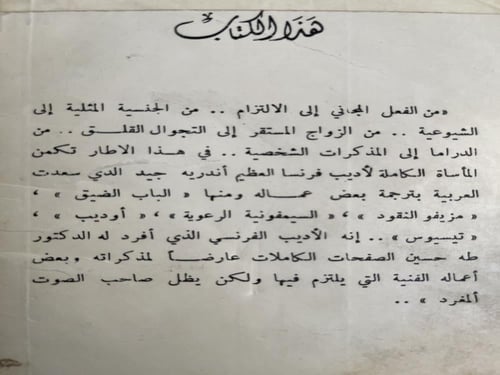 هَذَا الكتَابُ
«من الفعل المجاني إلى الالتزام .. من الجنسية المثلية إلى
الشيوعية .. من الزواج المستقر إلى التجوال القلـق .. من
الدراما إلى المذكرات الشخصية .. في هـذا الاطار تكمن
المأساة الكاملة لأديب فرنسا العظيم أندريه جيد الذي سعدت
العربية بترجمة بعض عمـاله ومنها « الباب الضيق » ‘
« مزيفو النقود » ‘ « السيمفونية الرعوية » ‘ « أوديب » ‘
« تيسيوس » .. إنه الأديب الفرنسي الذي أفرد له الدكتور
طه حسين الصفحات الكاملات عارضـاً لمذكراته وبعض
أعماله الفنية التي يلتزم فيها ولكن يظل صاحب الصوت
المفرد » ..